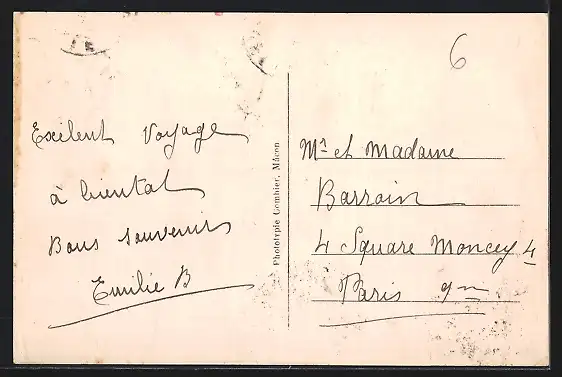 6
Excelent voyage
à bientot
Bons souvenirs
Emilie B
Phototypie Combier, Mâcon
Mr et Madame
Barrain
4 Square Moncey 4
Paris 9m